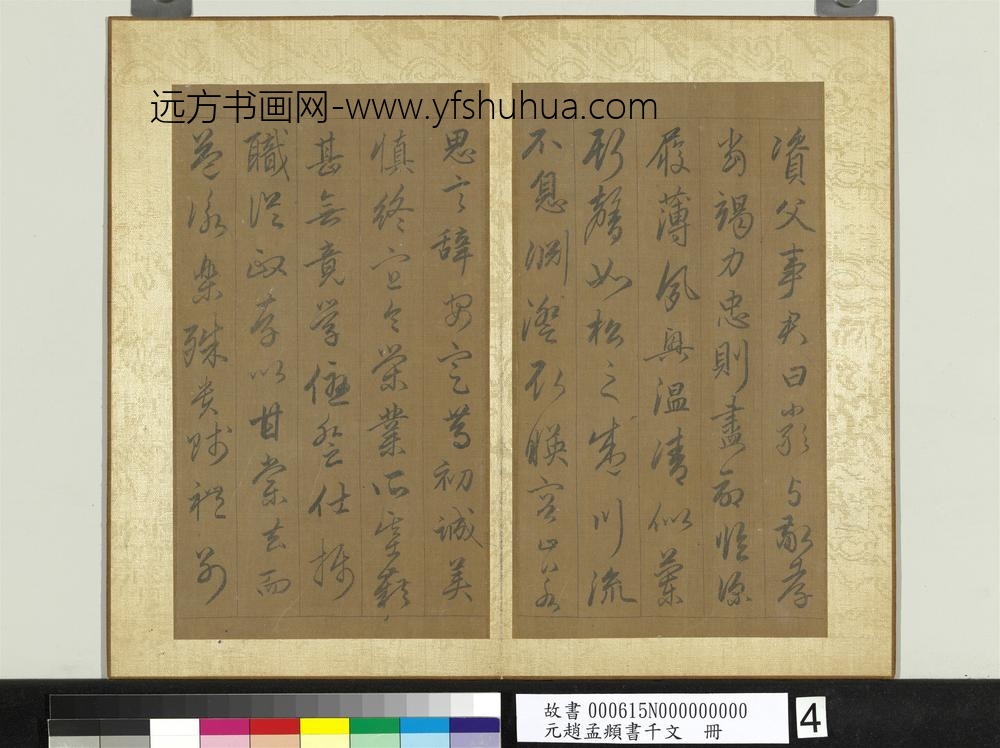 远方书画网-www.yfshuhua.com
資父事君曰嚴與敬孝
當竭力忠則盡命臨深
履薄夙興溫凊似蘭
斯馨如松之盛川流
不息淵澄取暎容止若
思言辭安定篤初誠美
慎終宜令榮業所基籍
甚無竟學優登仕攝
職從政存以甘棠去而
益詠樂殊貴賤禮別
故書 000615N000000000
元趙孟頫書千文 冊
4